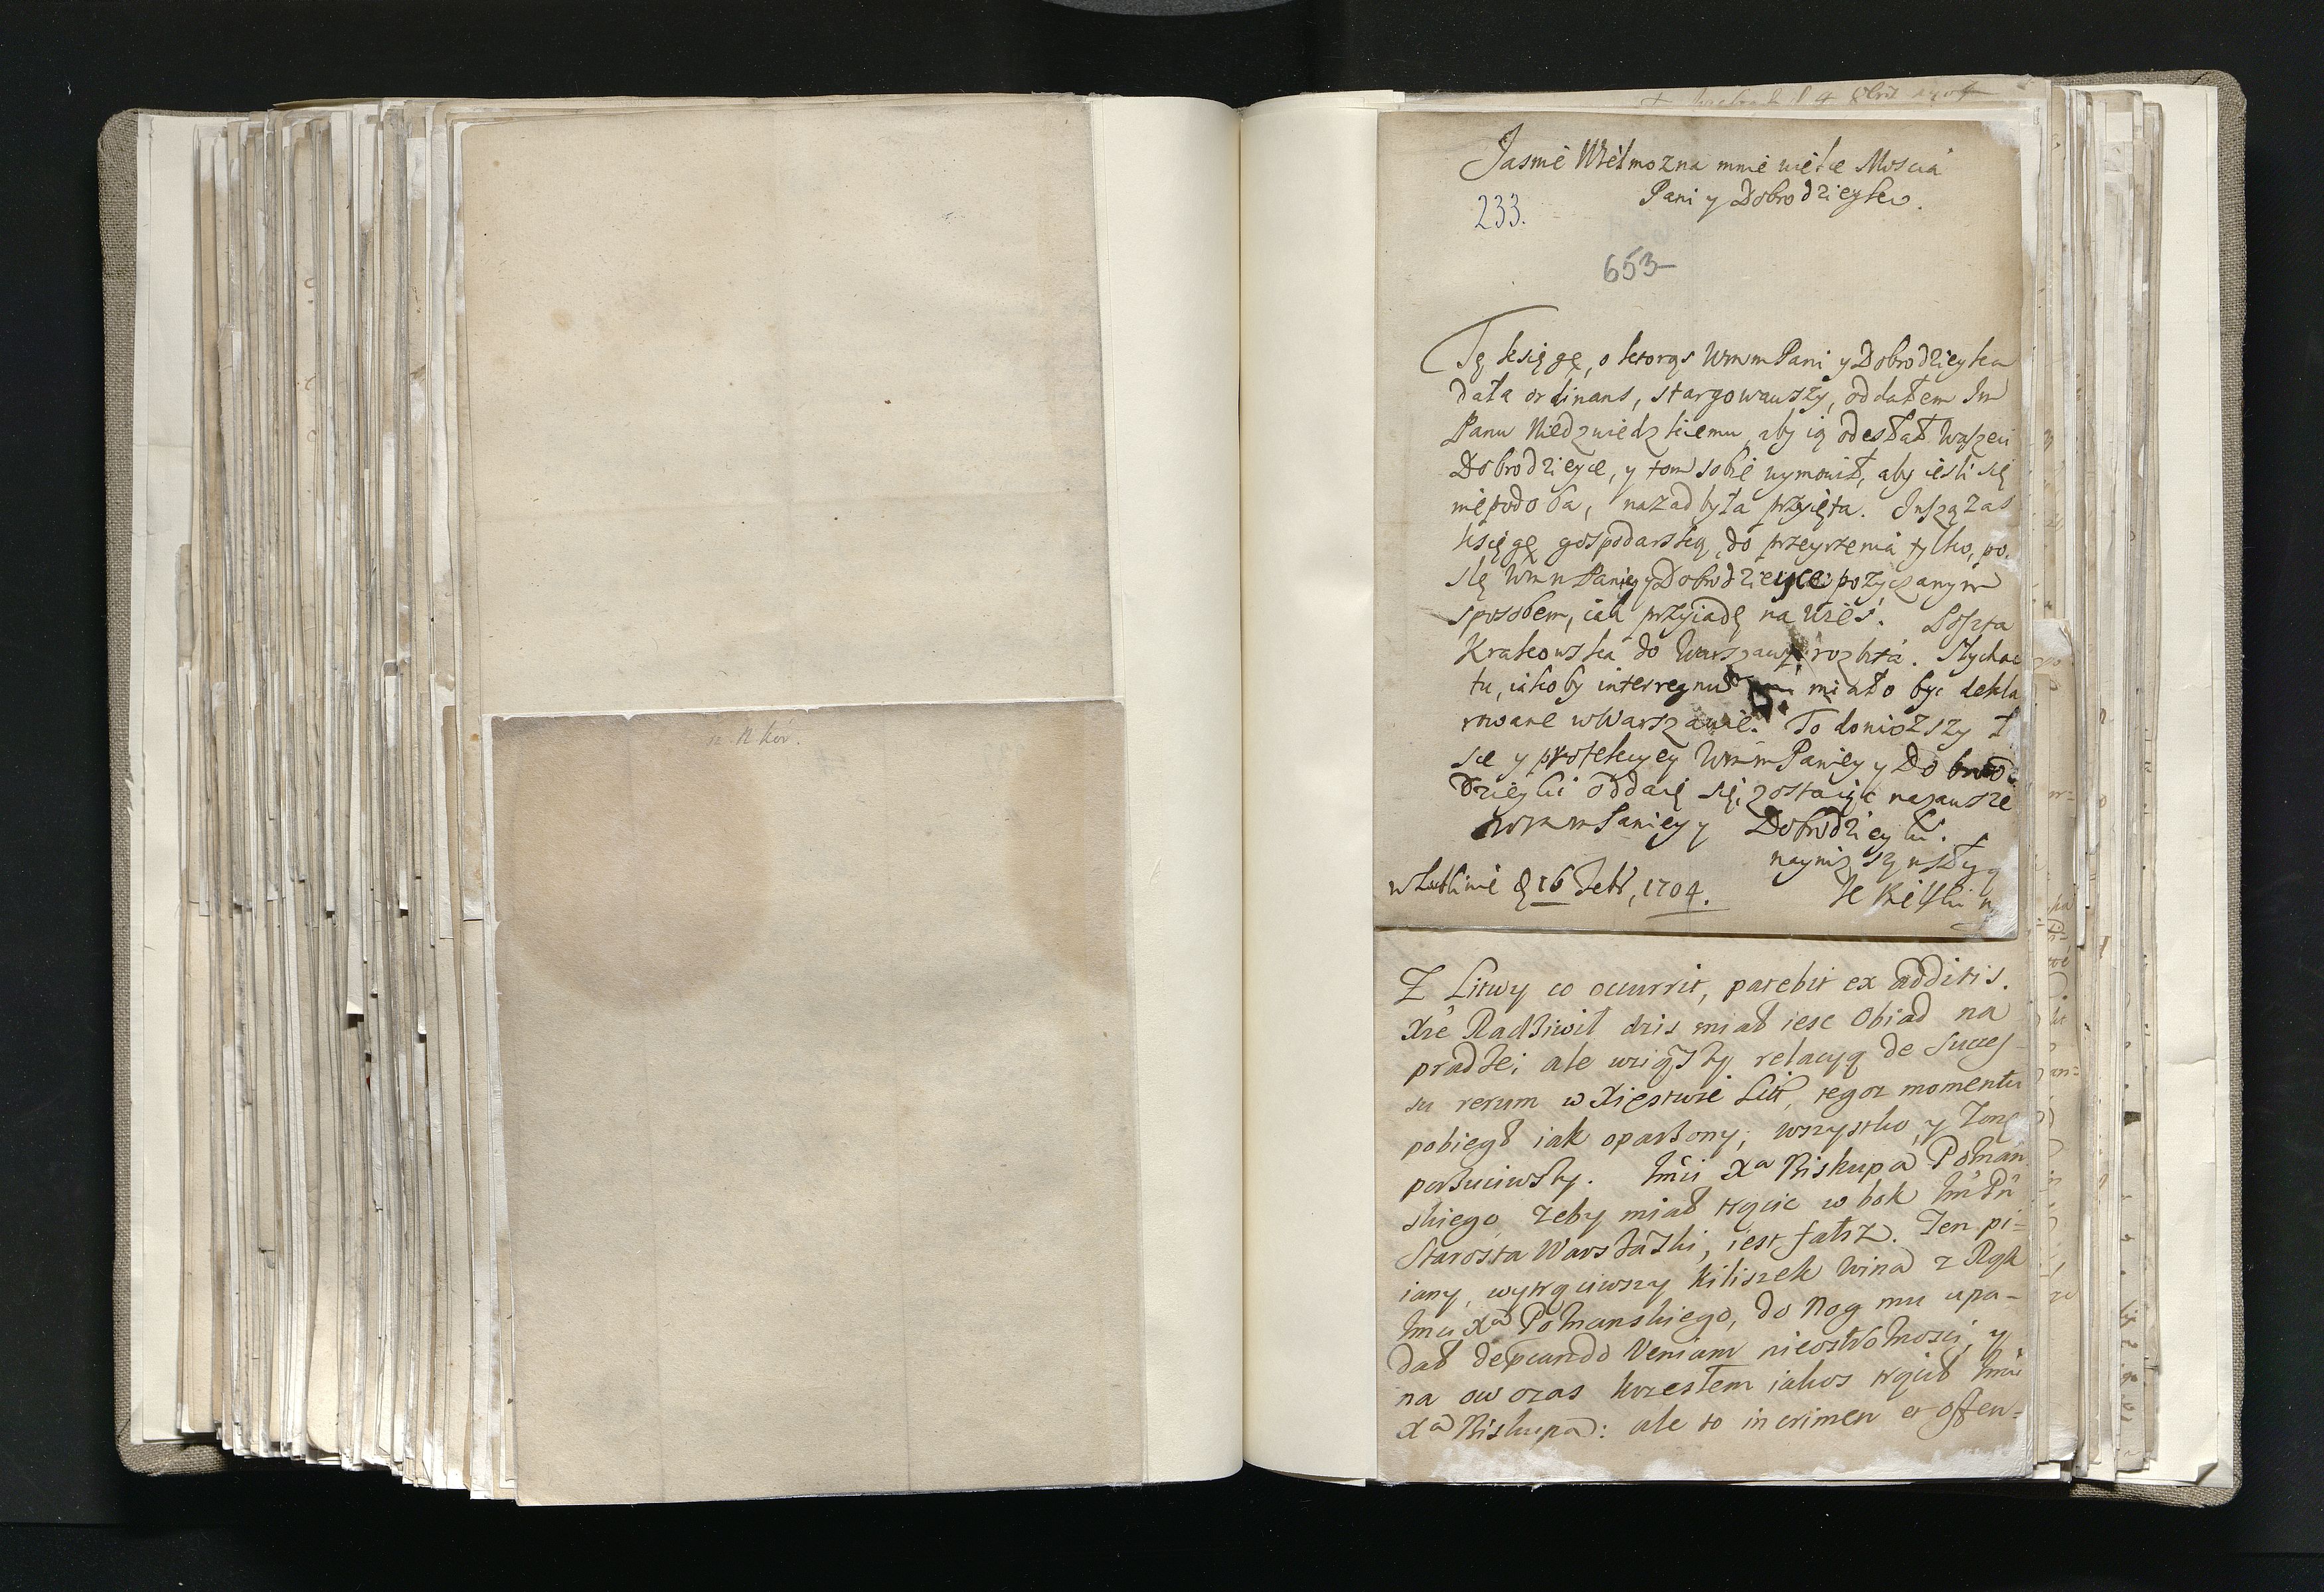 Jasnie Wielmozna mnie wielce Mościa
Pani y Dobrodzieyko.
233.
653
Tę księgę, o ktorąs WmmPani y Dobrodzieyka
dała ordinans, stargowawszy, oddałem Im
Panu Niedzwiedzkiemu, aby ią odesłał Waszeci
Dobrodzieyce, y tom sobie wymowił, aby iesli się
niepodoba, nazad była przyięta. Inszą zas
księgę gospodarską, do przeyrzenia tylko, po-
slę Wmm Paniey y Dobrodzieyce pożyczanym
sposobem, iak przyiadę na Wieś. Poszta
Krakowska do Warszawy rozbita. Słychac
tu, iakoby interregnum miało byc dekla
rowane w Warszawie. To doniozszy ł
sce y protekcyey WmmPaniey y Dobro
dzieyki oddaię się, zostaiąc nazawsze
WmmPaniey y Dobrodzieyki.
nayniższy
w Lublinie d 16 Febr, 1704.
n. Nkor.
Z Litwy co occurrit, patebit ex additis.
Xże Radziwił dzis miał iesc Obiad na
pradze; ale wziąwszy relacyą de Succes-
su rerum w Xięstwie Litt, tegoz momentu
pobiegł iak oparzony; wszystko y żonę
porzuciwszy. Imci Xa Biskupa Poznan
skiego żeby miał trącic w bok Im Pn
Starosta Warszawski, iest fałsz. Ten pi-
iany, wytrąciwszy kiliszek wina z Rąk
Imci Xa Poznanskiego, do Nog mu upa-
dał deprecando Veniam nieostrożnosci, y
na ow czas krzesłem iakos trącił Imci
Xa Biskupa: ale to in crimen et offen-